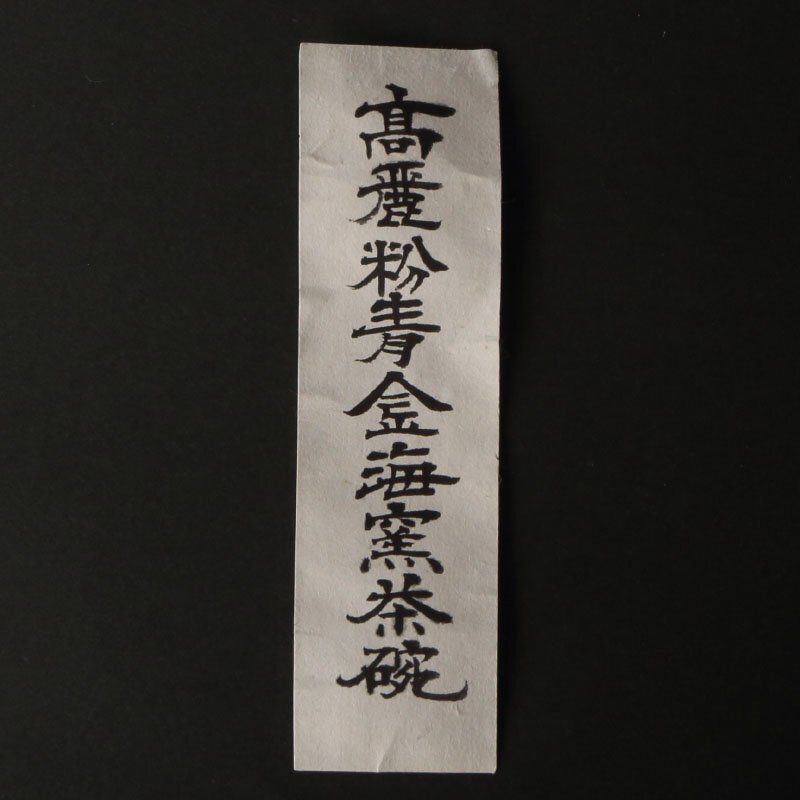 高麗粉青金海窯茶碗